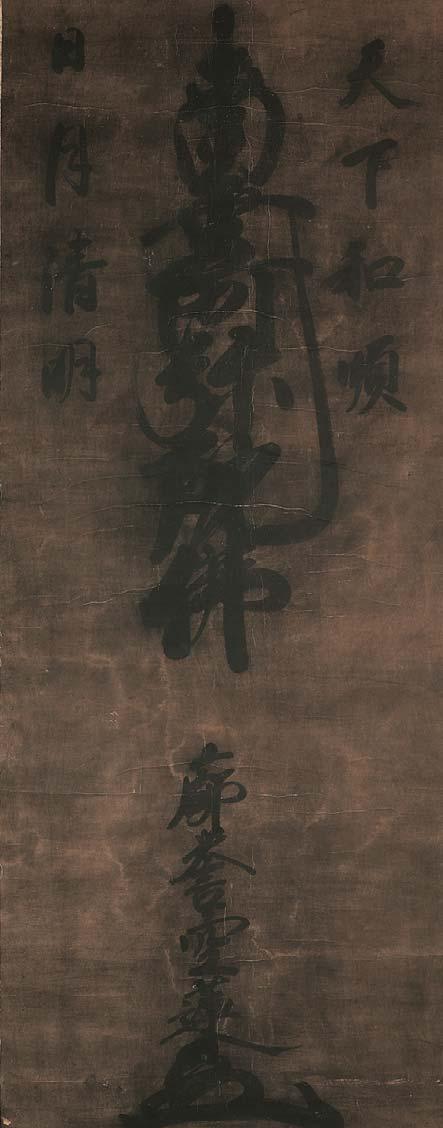 天下和順
南無阿弥陀佛
日月清明
廓誉